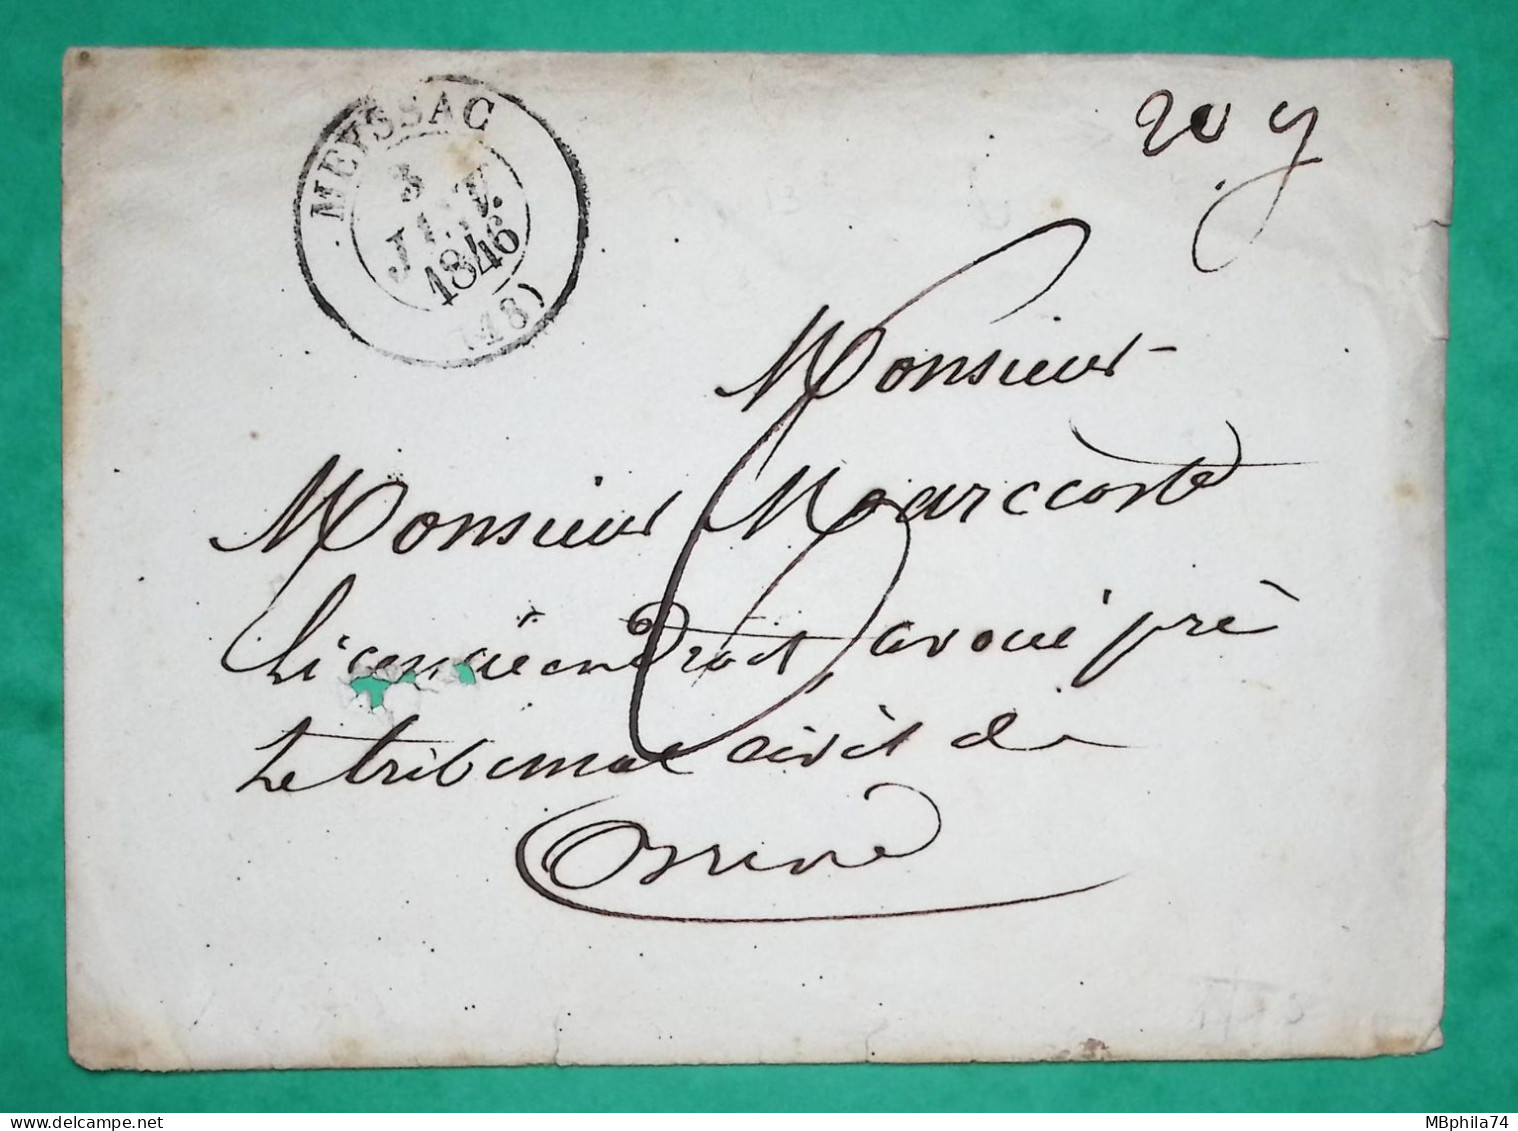 MEYSSAC
3
JANV.
1846
(18)
20 g
6
Monsieur
Monsieur Marccoste
Licencié en Droit, avoué prè
Le tribunal Civil de
Brive
MBphila74